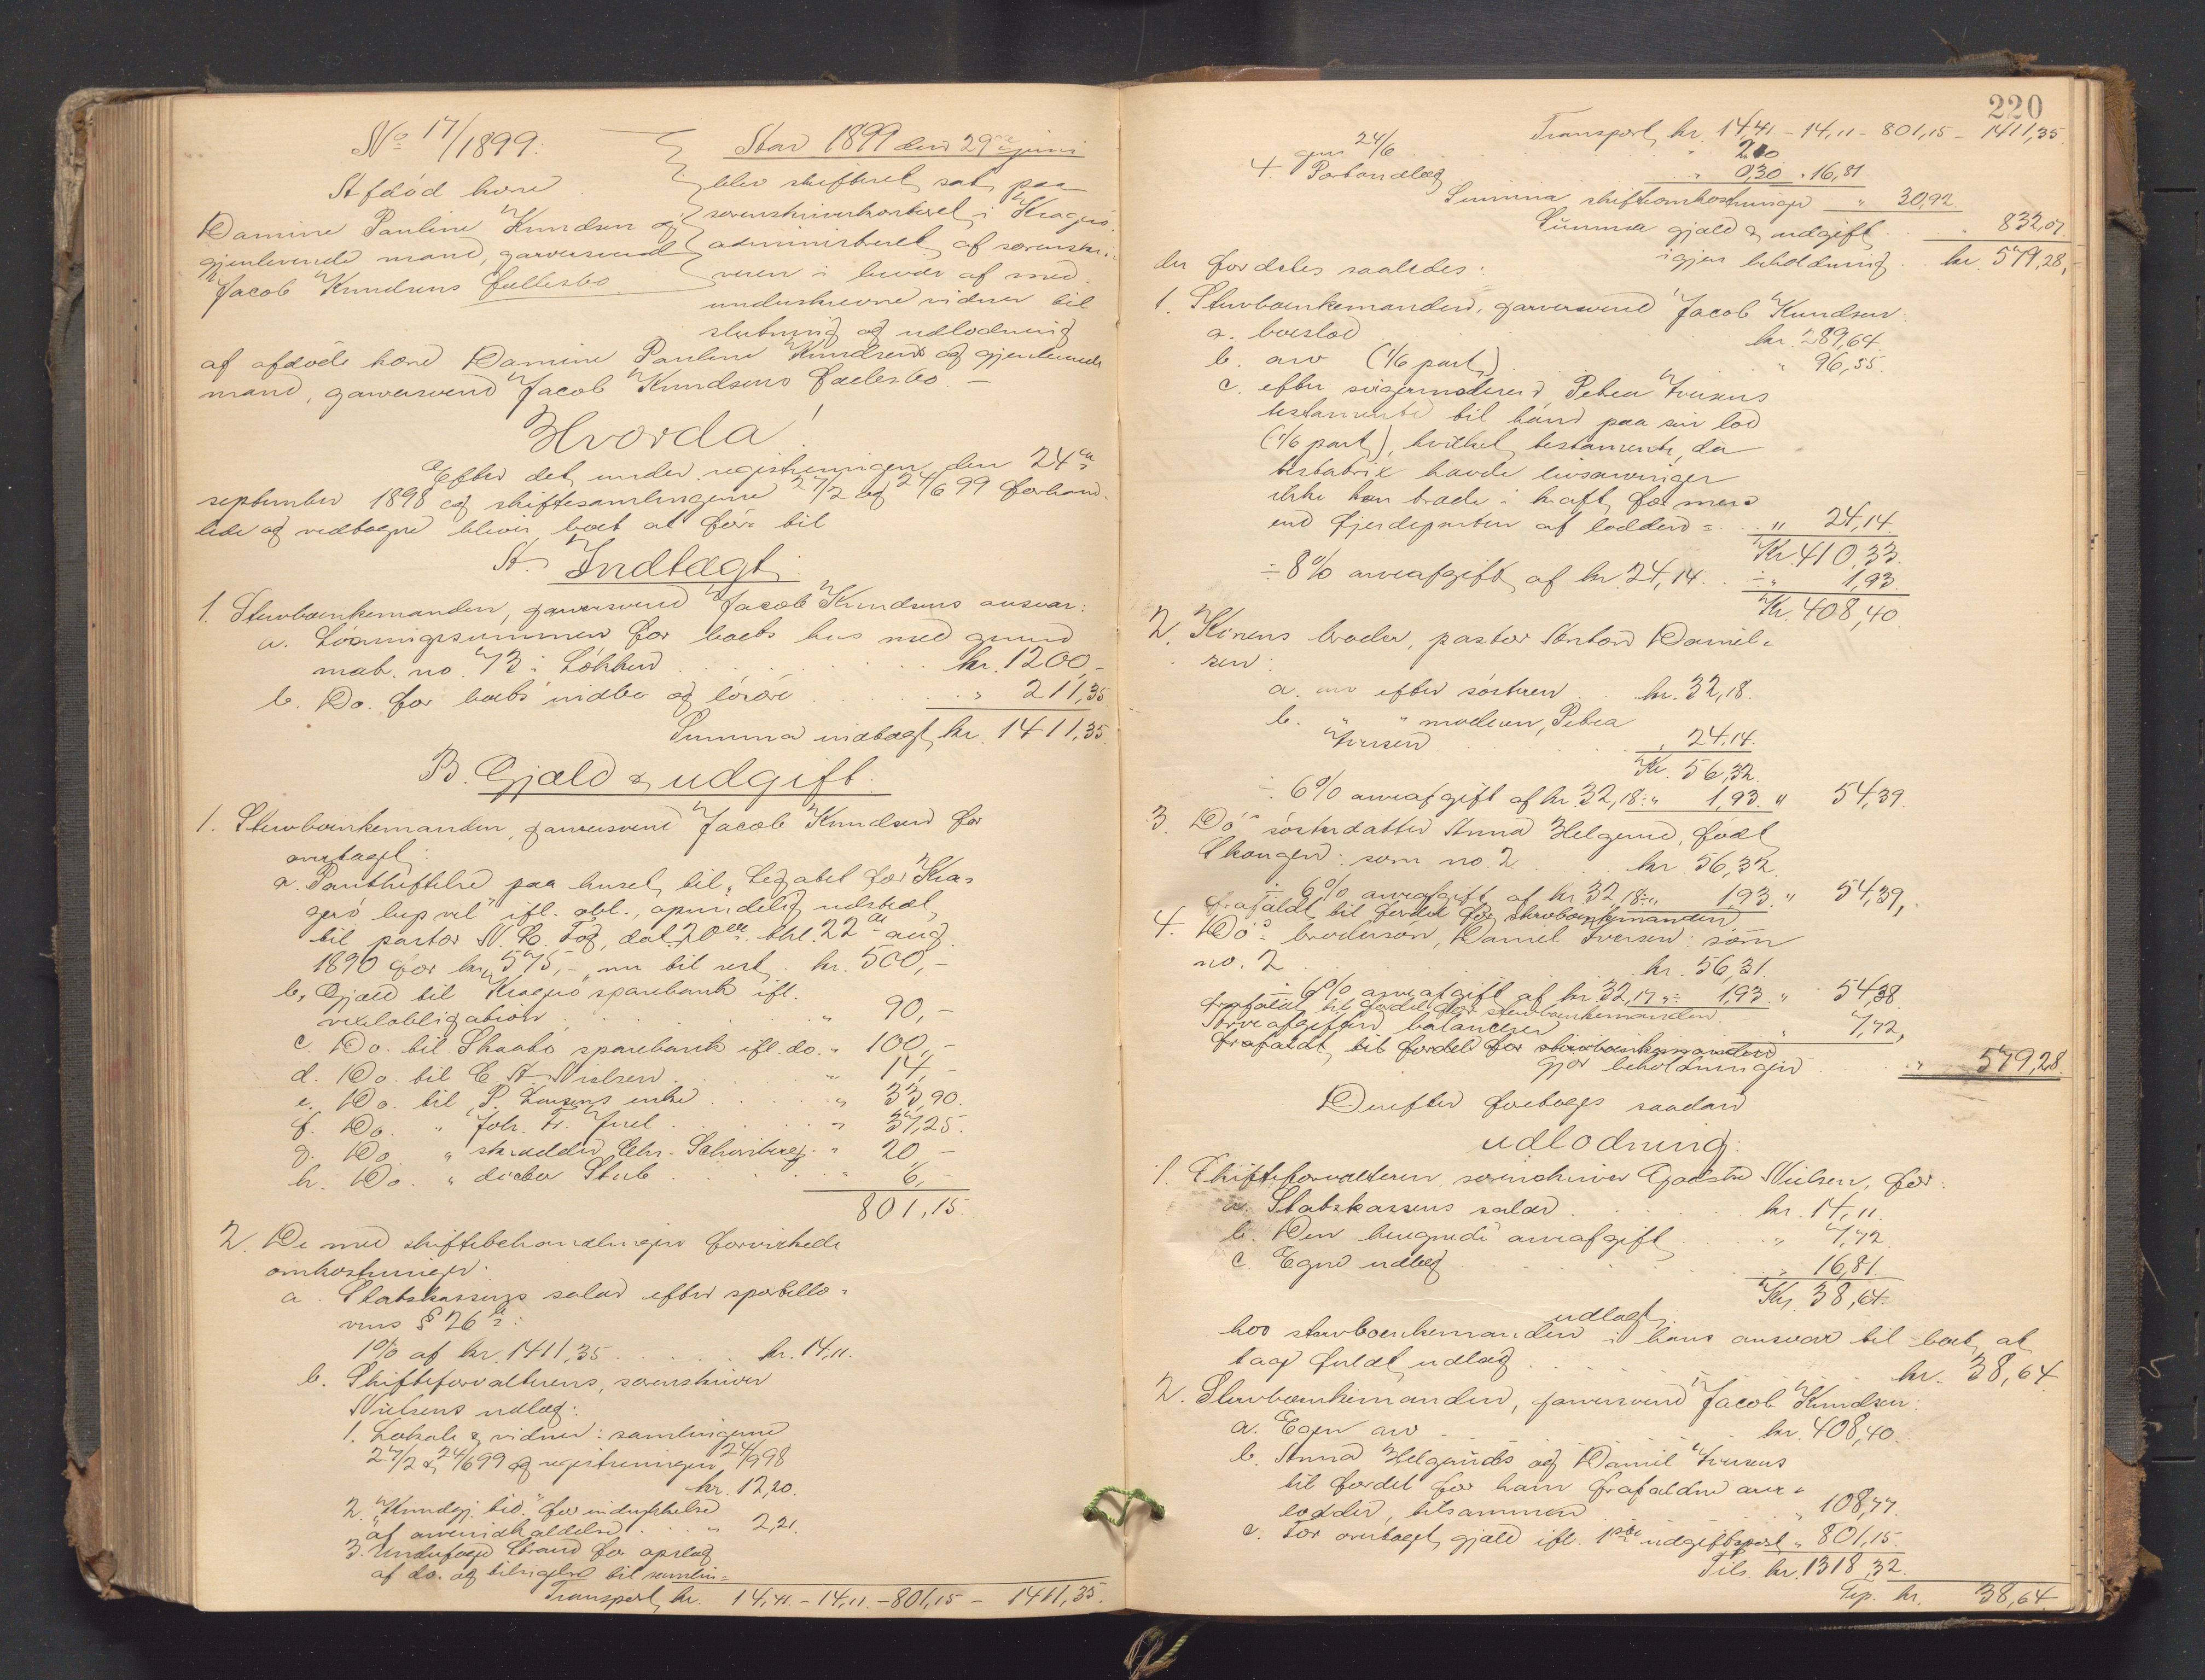 No 17/1899.
Afdød kone
Damine Pauline Knudsen og
gjenlevende mand, garversvend
Jacob Knudsens fællesbo.
Aar 1899 den 29de juni
blev skifteret sat paa
sorenskriverkontoret i Kragerø,
administreret af sorenskri-
veren i hvorde af med
underskrevne vidner til
slutning og udlodning
af afdøde kone Damine Pauline Knudsens og gjenlevende
mand, garversvend Jacob Knudsens fællesbo. —
Hvorda!
Efter det under registreringen den 24de
september 1898 og skiftesamlingerne 27/2 og 24/6 99 forhand-
lede og vedtagne bliver boet at føre til
A. Indtægt:
1. Stervboenkemanden, garversvend Jacob Knudsens ansvar:
a. Løsningssummen for boets hus med grund
mat. no. 73 i Løkken . . . kr. 1200,-
b. Do. for boets indbo og løsøre . . . " 211,35
Summa indtægt kr. 1411,35.
B. Gjæld & udgift:
1. Stervboenkemanden, garversvend Jacob Knudsen for
overtaget:
a. Pantheftelse paa huset til "Legatet for Kra-
gerø bys vel" ifl. obl., oprindelig udstedt
til pastor N. B. Tog, dat. 20de thl. 22de aug.
1890 for kr. 575,-, nu til rest kr. 500,-
b. Gjæld til Kragerø sparebank ifl.
vexelobligation . . . " 90,-
c. Do. til Skaabø sparebank ifl. do. " 100,-
d. Do. til C. A. Nielsen . . . " 14,-
e. Do. til P. Larsens enke . . . " 33,90.
f. Do. " Joh. Fr. Juel . . . " 37,25.
g. Do. " skrædder Chr. Schwitzeg. " 20,-
h. Do. " doctor Stub . . . " 6,-
801,15.
2. De med skiftebehandlingen forvirkede
omkostninger:
a. Statskassens salær efter sportello-
vens § 26 a:
1% af kr. 1411,35 . . . kr. 14,11.
b. Skifteforvalterens, sorenskriver
Nielsens udlæg:
1. Lokale & vidner: samlingerne
27/2 & 24/6 99 og registreringen 24/9 98
kr. 12,20.
2. "Kundgj. tid." for indrykkelse
af arveindkaldelse . . . " 2,21.
3. Underfoged Strand for opslag
af do. og tilsigelse til samlin-
Transport kr. 14,41. - 14,11. - 801,15 - 1411,35.
220
Transport kr. 14,41 - 14,11 - 801,15 - 1411,35
gen 24/6 . . . " 2,10
4. Portoudlæg . . . " 0,30 " 16,81
Summa skifteomkostninger " 30,92.
Summa gjæld & udgift . . . " 832,07
igjen beholdning kr. 579,28,
der fordeles saaledes:
1. Stervboenkemanden, garversvend Jacob Knudsen:
a. boeslod . . . kr. 289,64.
b. arv (1/6 part) . . . " 96,55.
c. efter svigermoderen Petrea Iversens
testamente til ham paa sin lod
(1/6 part), hvilket testamente, da
testatrix havde livsarvinger
ikke kan træde i kraft for mere
end fjerdeparten af lodden = . . " 24,14.
Kr. 410,33.
÷ 8% arveafgift af kr. 24,14. . ÷ " 1,93.
Kr. 408,40.
2. Konens broder, pastor Anton Daniel-
sen:
a. arv efter søsteren . . kr. 32,18.
b. " " moderen, Petrea
Iversen . . . " 24,14.
Kr. 56,32.
÷ 6% arveafgift af kr. 32,18 ÷ " 1,93. " 54,39.
3. Do's søsterdatter Anna Helgerud, født
Skougen: som no. 2 . . kr. 56,32.
÷ 6% arveafgift af kr. 32,18 ÷ " 1,93 " 54,39,
frafaldt til fordel for stervboenkemanden
4. Do's brodersøn, Daniel Iversen: som
no. 2 . . . kr. 56,31.
÷ 6% arveafgift af kr. 32,17 " ÷ 1,93. " 54,38.
frafaldt til fordel for stervboenkemanden.
Arveafgiften balancerer . . . " 7,72,
frafaldt til fordel for stervboenkemanden
Gjør beholdningen . . . " 579,28.
Derefter foretoges saadan
udlodning:
1. Skifteforvalteren, sorenskriver Nielsen, for:
a. Statskassens salær . . . kr. 14,11.
b. Den beregnede arveafgift . . . " 7,72.
c. Egne udlæg . . . " 16,81.
Kr. 38,64.
udlagt
hos stervboenkemanden i hans ansvar til boet, at
tage fuldt udlæg . . . kr. 38,64
2. Stervboenkemanden, garversvend Jacob Knudsen:
a. Egen arv . . . kr. 408,40.
b. Anna Helgeruds og Daniel Iversens
til fordel for ham frafaldne arve-
lodder, tilsammen . . . " 108,77.
c. For overtaget gjæld ifl. 1ste udgiftspost " 801,15.
Tils. kr. 1318,32.
Trp. kr. 38,64